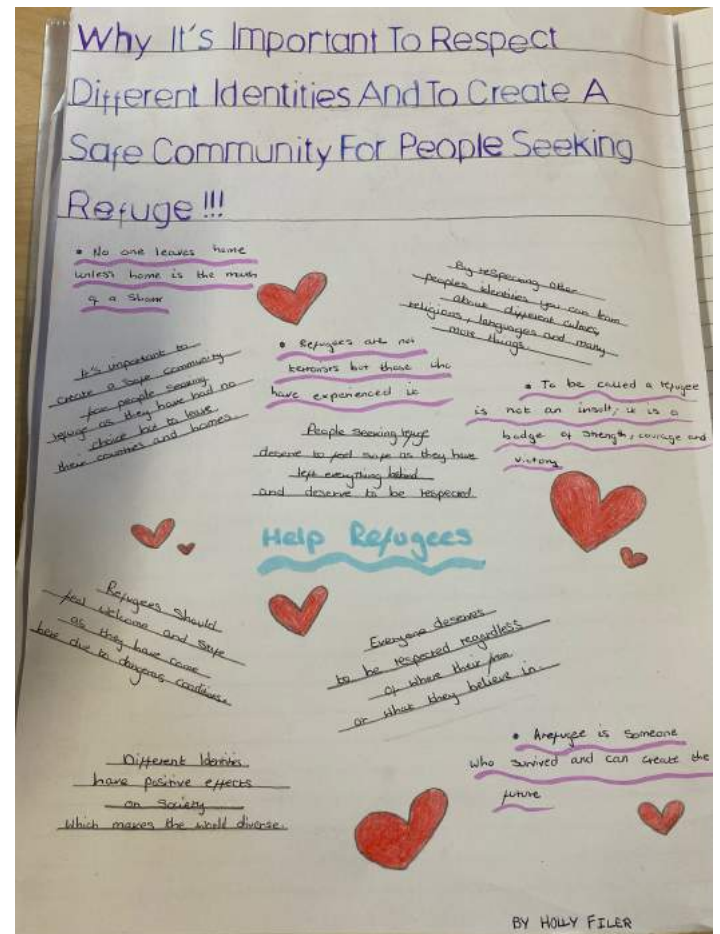 Why It's Important To Respect
Different Identities And To Create A
Safe Community For People Seeking
Refuge!!!
• No one leaves home
unless home is the mouth
of a Shark
By respecting other
peoples identities you can learn
about different cultures,
religions, languages and many
more things.
It's important to
create a safe community
for people seeking
refuge as they have had no
choice but to leave
their countries and homes.
• Refugees are not
terrorists but those who
have experienced it
• To be called a refugee
is not an insult, it is a
badge of strength, courage and
victory
People seeking refuge
deserve to feel safe as they have
left everything behind
and deserve to be respected
Help Refugees
Refugees should
feel welcome and safe
as they have come
here due to dangerous conditions.
Everyone deserves
to be respected regardless
of where their from
or what they believe in.
Different Identities
have positive effects
on society
which makes the world diverse.
• A refugee is someone
who survived and can create the
future
BY HOLLY FILER